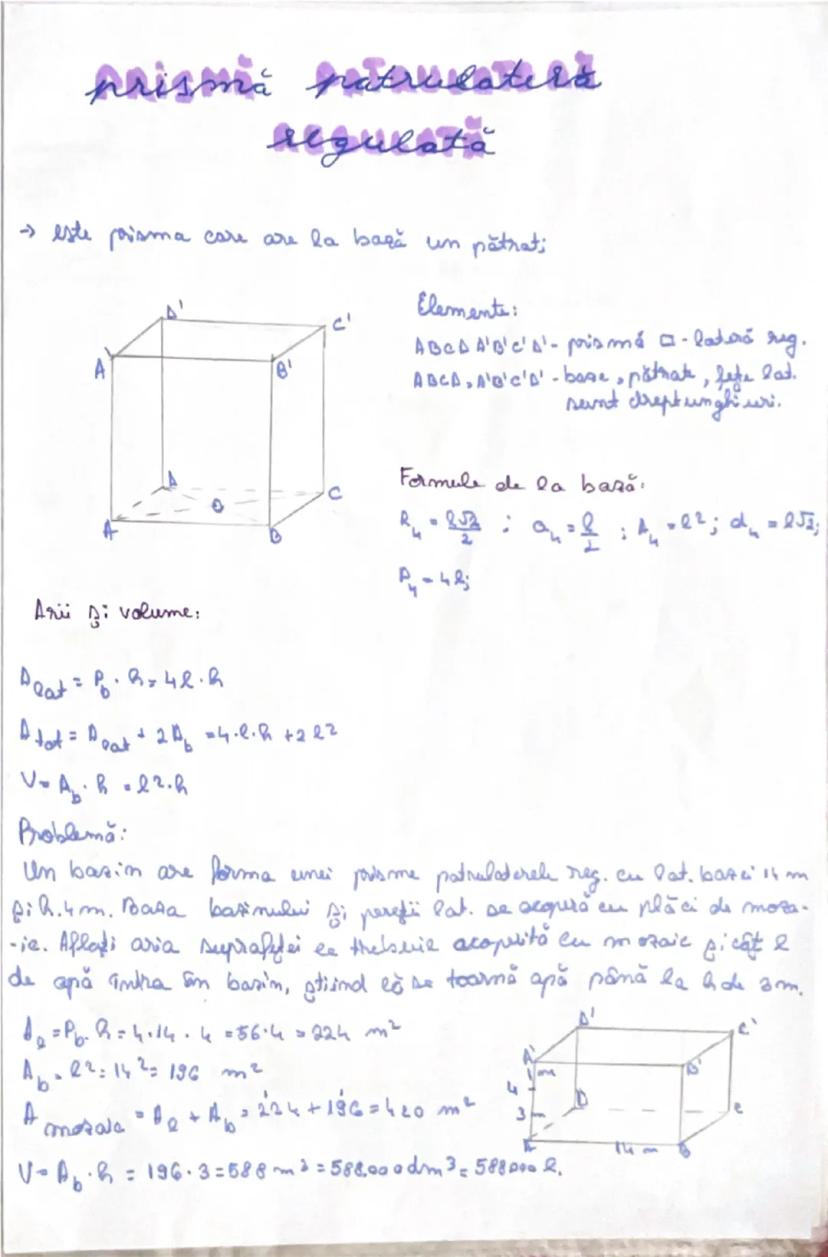 prismă patrulateră
regulată
→ este prisma care are la bază un pătrat;
D'
C'
A'
B'
D
C
O
A
B
Elemente:
ABCD A'B'C'D' - prismă □-lateră reg.
ABCD, A'B'C'D' - baze, pătrate, fețe lat.
sunt dreptunghiuri.
Formule de la bază:
R₄ = l√2/2 ; a₄ = l/2 ; A₄ = l²; d₄ = l√2;
P₄ = 4l;
Arii și volume:
A lat = P_b · h = 4l · h
A tot = A lat + 2A_b = 4·l·h + 2l²
V = A_b · h = l²·h
Problemă:
Un bazin are forma unei prisme patrulatere reg. cu lat. bazei 14 m
și h. 4 m. Baza bazinului și pereții lat. se acoperă cu plăci de moza-
-ic. Aflați aria suprafeței ce trebuie acoperită cu mozaic și cât l
de apă intra în bazin, știind că se toarnă apă până la h de 3 m.
A_l = P_b · h = 4·14 · 4 = 56·4 = 224 m²
A_b = l² = 14² = 196 m²
A mozaic = A_l + A_b = 224 + 196 = 420 m²
V = A_b · h = 196 · 3 = 588 m³ = 588.000 dm³ = 588000 l.
D'
C'
A'
B'
1m
4
3
D
C
A
14 m
B